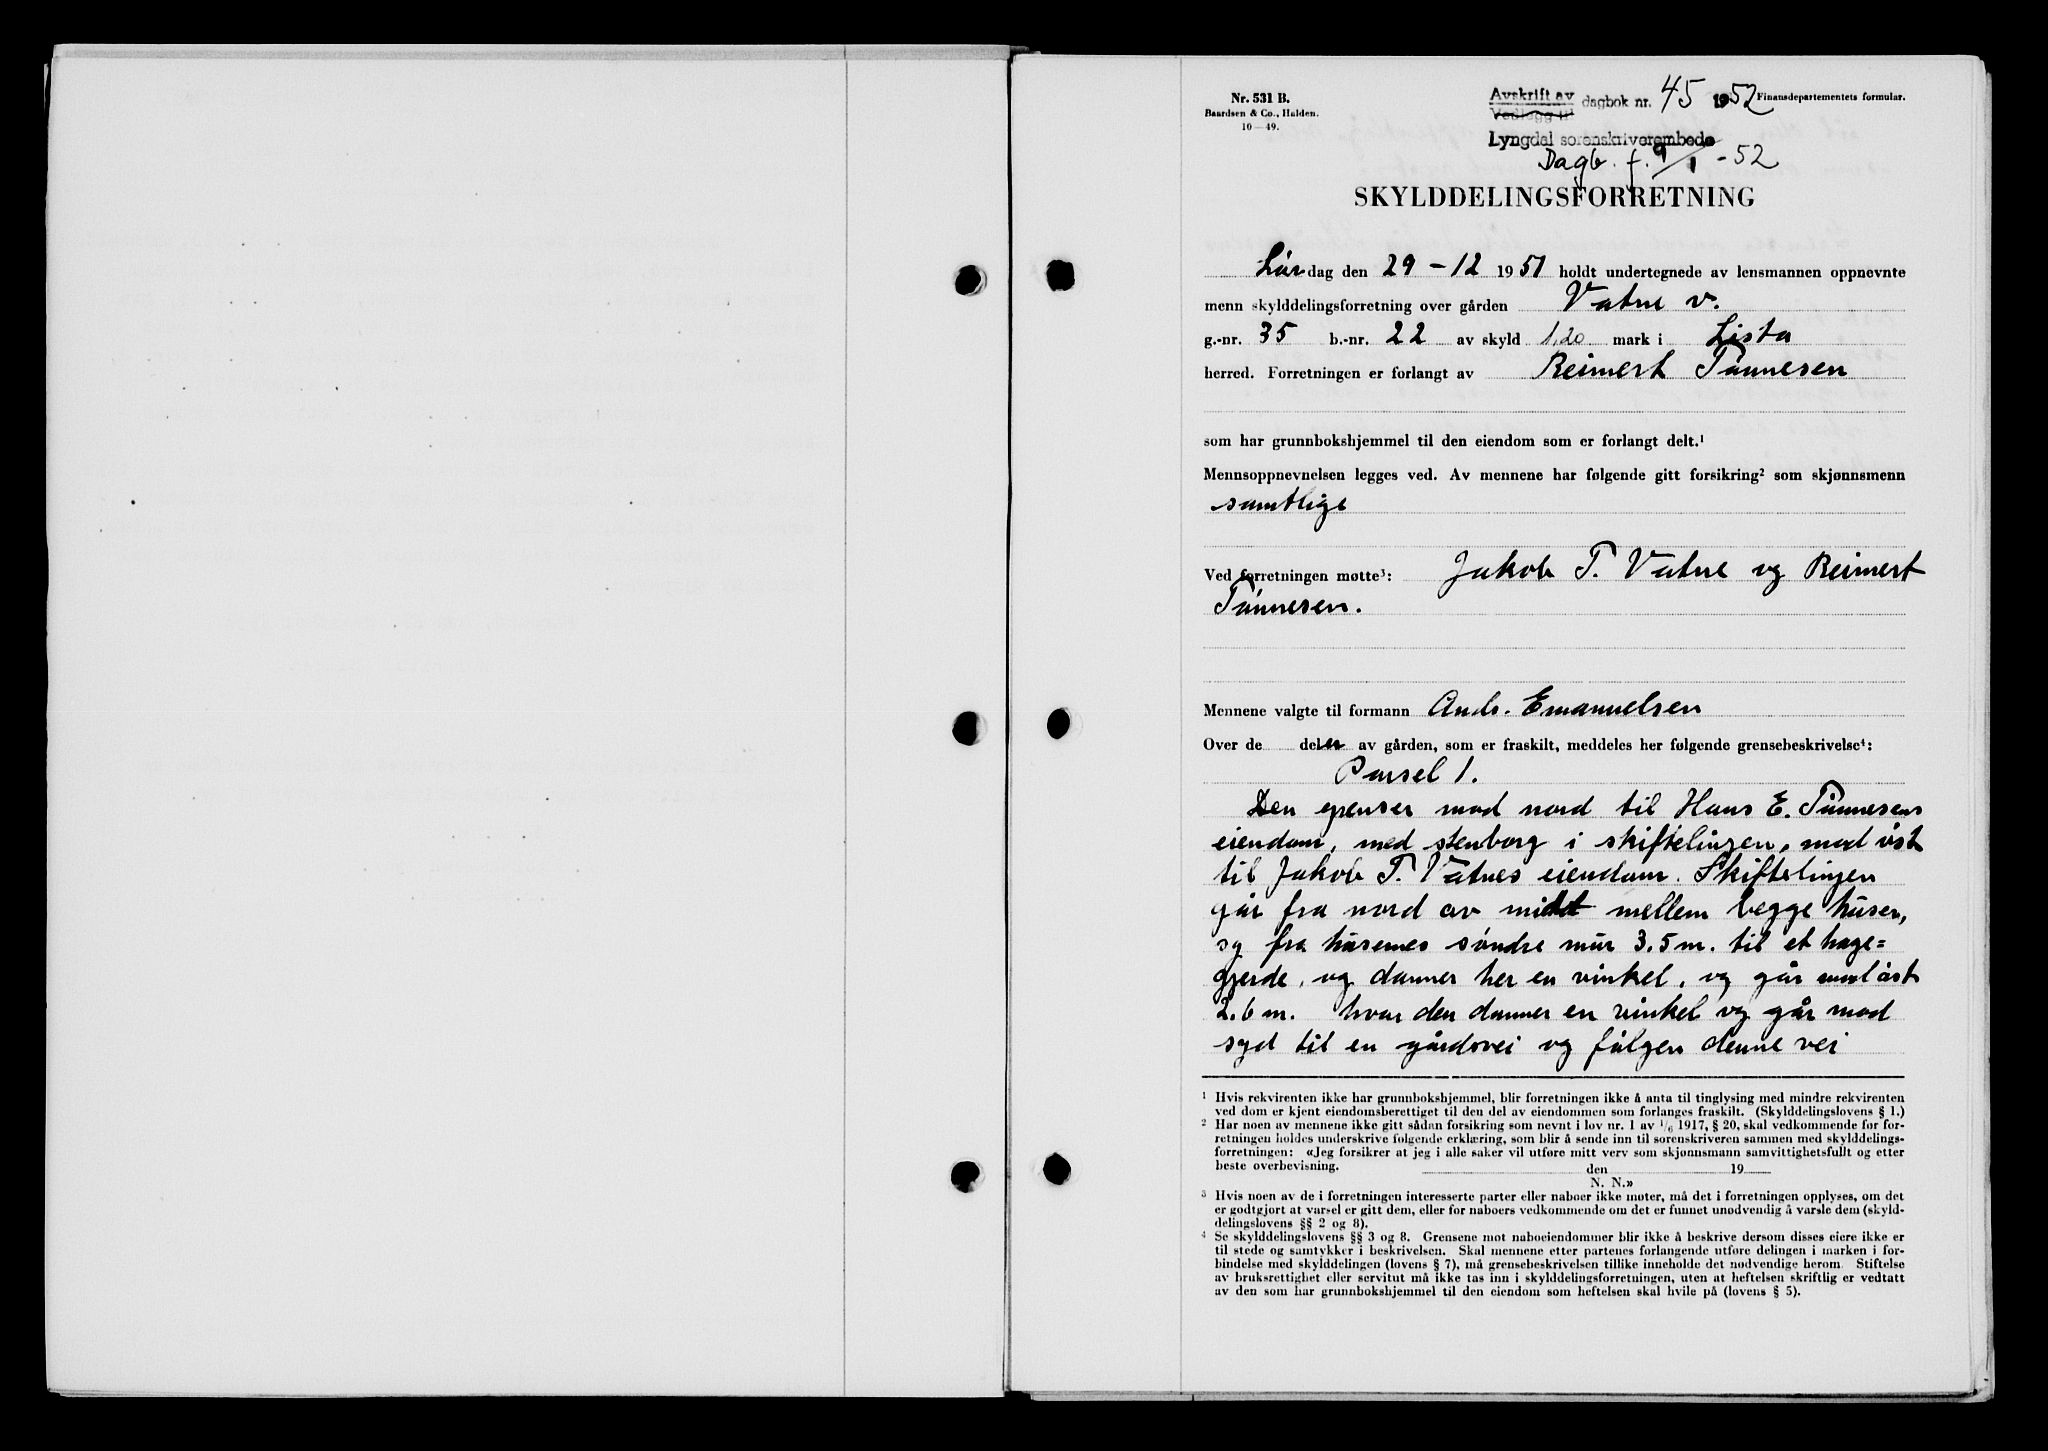 Nr. 531 B.
Baardsen & Co., Halden.
10—49.
Avskrift av
Vedlegg til
dagbok nr. 45 1952 Finansdepartementets formular.
Lyngdal sorenskriverembede
Dagb. f. 9/1 - 52
SKYLDDELINGSFORRETNING
Lørdag den 29 - 12 1951 holdt undertegnede av lensmannen oppnevnte
menn skylddelingsforretning over gården Vatne v.
g.-nr. 35 b.-nr. 22 av skyld 1,20 mark i Lista
herred. Forretningen er forlangt av Reimert Tønnesen
som har grunnbokshjemmel til den eiendom som er forlangt delt.¹
Mennsoppnevnelsen legges ved. Av mennene har følgende gitt forsikring² som skjønnsmenn
samtlige
Ved forretningen møtte³: Jakob T. Vatne og Reimert
Tønnesen.
Mennene valgte til formann Andr. Emanuelsen
Over de deler av gården, som er fraskilt, meddeles her følgende grensebeskrivelse⁴:
Parsel 1.
Den grenser mod nord til Hans E. Tønnesens
eiendom, med stenborg i skiftelinjen, mod øst
til Jakob T. Vatnes eiendom. Skiftelinjen
går fra nord av midt mellem begge huser,
og fra husernes søndre mur 3.5 m. til et hage=
gjerde, og danner her en vinkel, og går mod øst
2.6 m. hvor den danner en vinkel og går mod
syd til en gårdsvei og følger denne vei
¹ Hvis rekvirenten ikke har grunnbokshjemmel, blir forretningen ikke å anta til tinglysing med mindre rekvirenten
ved dom er kjent eiendomsberettiget til den del av eiendommen som forlanges fraskilt. (Skylddelingslovens § 1.)
² Har noen av mennene ikke gitt sådan forsikring som nevnt i lov nr. 1 av 1/6 1917, § 20, skal vedkommende før for-
retningen holdes underskrive følgende erklæring, som blir å sende inn til sorenskriveren sammen med skylddelings-
forretningen: «Jeg forsikrer at jeg i alle saker vil utføre mitt verv som skjønnsmann samvittighetsfullt og etter
beste overbevisning. den 19
N. N.»
³ Hvis noen av de i forretningen interesserte parter eller naboer ikke møter, må det i forretningen opplyses, om det
er godtgjort at varsel er gitt dem, eller for naboers vedkommende om det er funnet unødvendig å varsle dem (skyld-
delingslovens §§ 2 og 8).
⁴ Se skylddelingslovens §§ 3 og 8. Grensene mot naboeiendommer blir ikke å beskrive dersom disses eiere ikke er
til stede og samtykker i beskrivelsen. Skal mennene etter partenes forlangende utføre delingen i marken i for-
bindelse med skylddelingen (lovens § 7), må grensebeskrivelsen tillike inneholde det nødvendige herom. Stiftelse
av bruksrettighet eller servitut må ikke tas inn i skylddelingsforretningen, uten at heftelsen skriftlig er vedtatt
av den som har grunnbokshjemmel til den eiendom som heftelsen skal hvile på (lovens § 5).